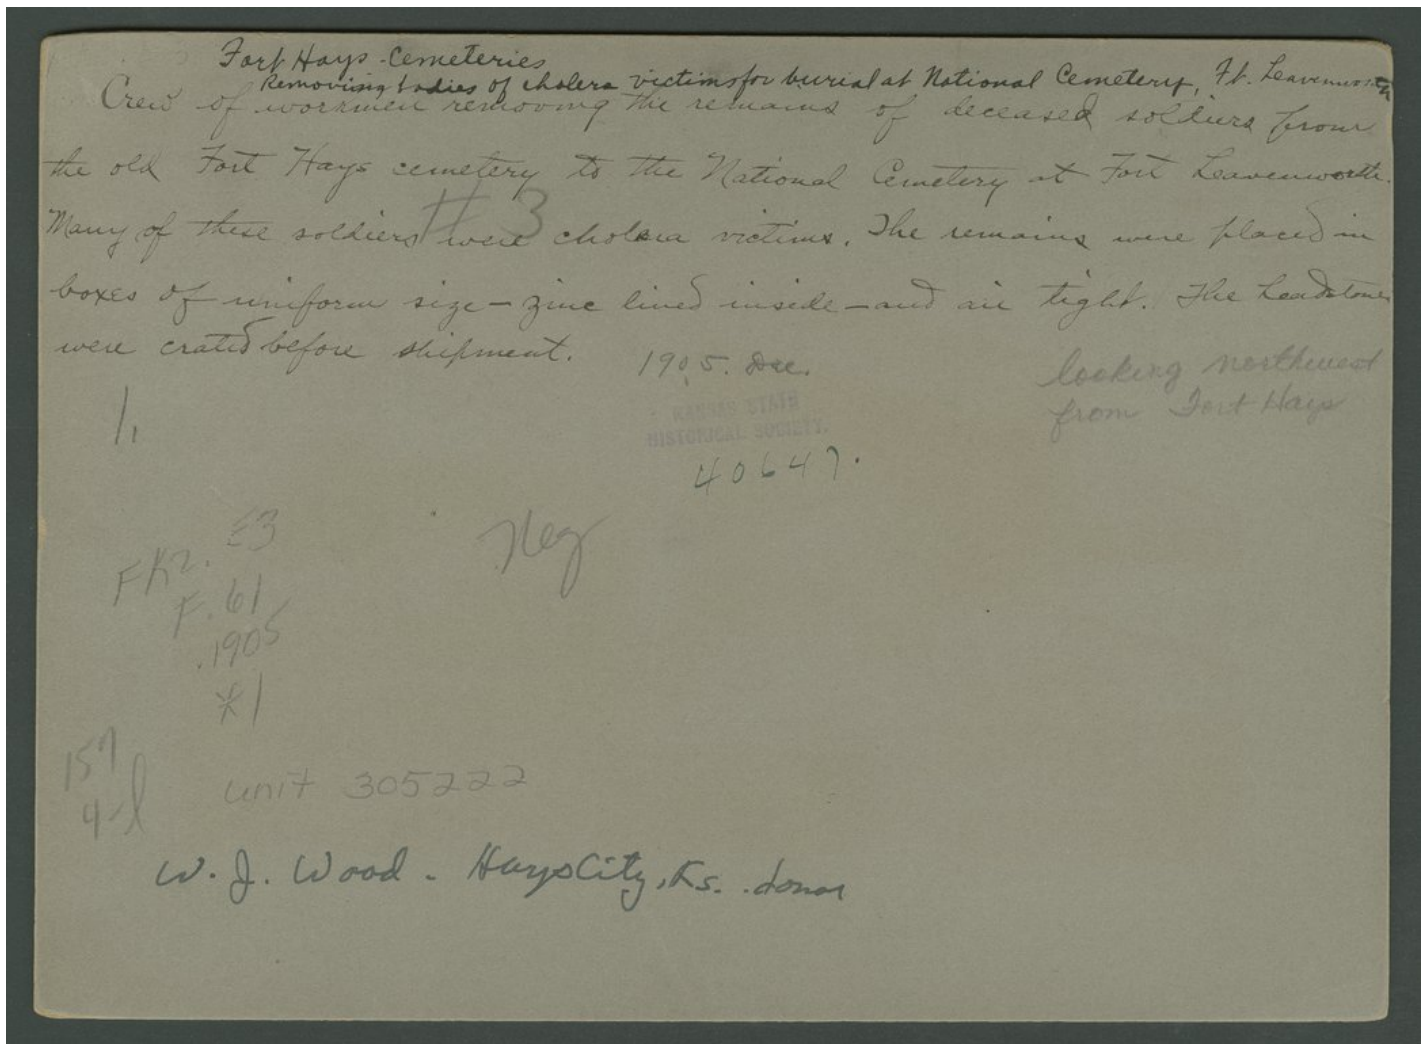 Fort Hays - Cemeteries
Removing bodies of cholera victims for burial at National Cemetery, Ft. Leavenworth
Crew of workmen removing the remains of deceased soldiers from
the old Fort Hays cemetery to the National Cemetery at Fort Leavenworth.
#3
Many of these soldiers were cholera victims. The remains were placed in
boxes of uniform size – zinc lined inside – and air tight. The headstones
were crated before shipment.
1905. Dec.
looking northwest
from Fort Hays
1.
KANSAS STATE
HISTORICAL SOCIETY.
40647.
Neg
FK2. E3
F. 61
.1905
*1
157
4-l
unit 305222
W. J. Wood - Hays City, Ks. donor